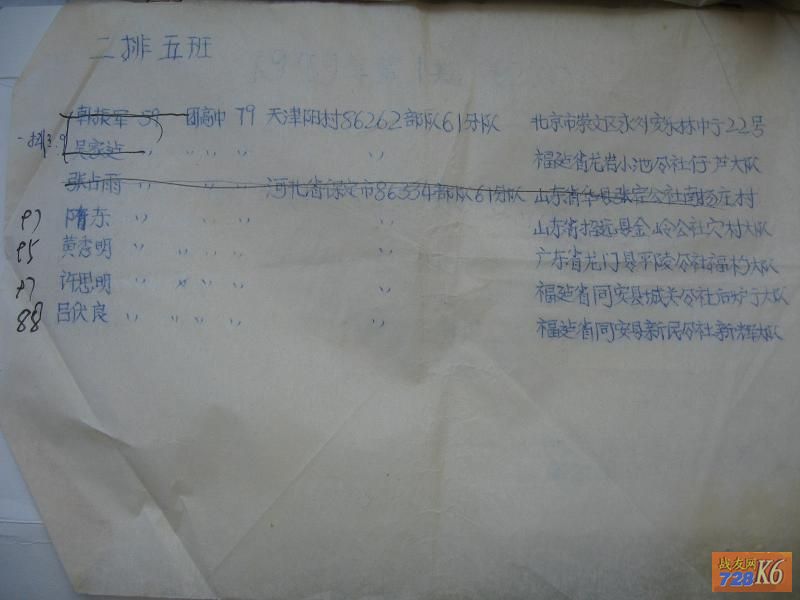 二排五班
韩振军 59 团高中 79 天津阳村86262部队61分队 北京市崇文区永外安乐林中街22号
一排3.9
吴家廷 〃 〃 〃 〃 福建省龙岩小池公社 大队
张占雨 〃 〃 河北省保定市86334部队61分队 山东省 县张 公社 杨庄村
97 隋东 〃 〃 〃 〃 〃 山东省招远县金岭公社穴村大队
95 黄秀明 〃 〃 〃 〃 〃 广东省龙门县平陵公社 大队
97 许思明 〃 〃 〃 〃 〃 福建省同安县城关公社后炉子大队
88 吕伏良 〃 〃 〃 〃 〃 福建省同安县新民公社新辉大队
战友网
728K6